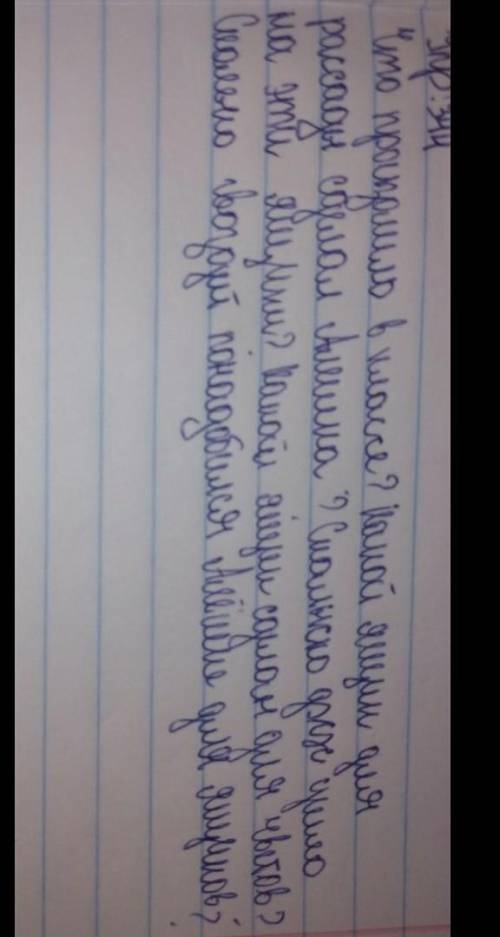 Упр: 344
"Что произошло в классе? Какой ящик для
рассады сделал Алёшка? Сколько дж ушло
на эти ящики? Какой ящик сделан для цветов?
Сколько гвоздей понадобился Алёшке для ящиков?